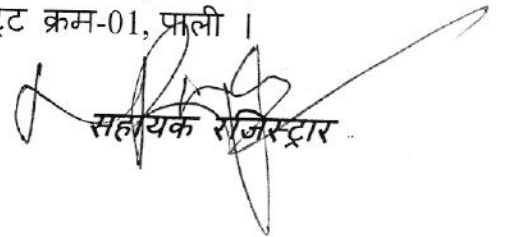 क्रम-01, पाली ।
सहायक रजिस्ट्रार